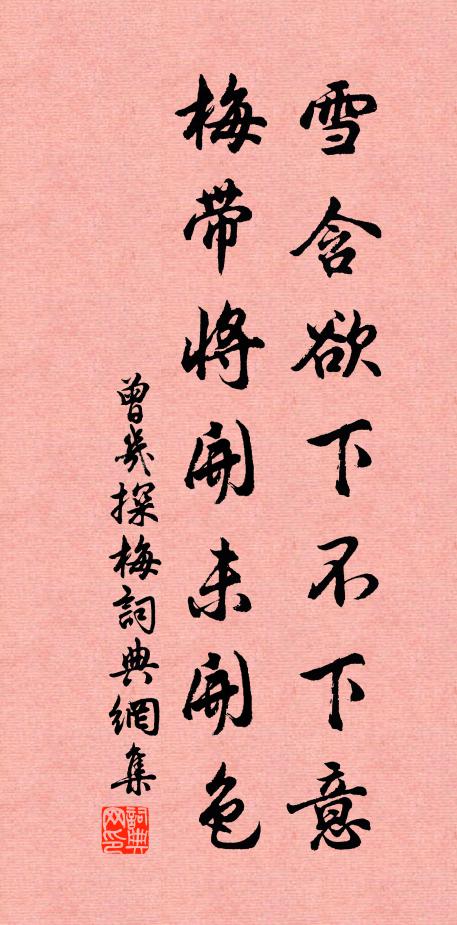 雪含欲下不下意
梅带将開未開色
曾幾探梅詞典網集
詞典
网印